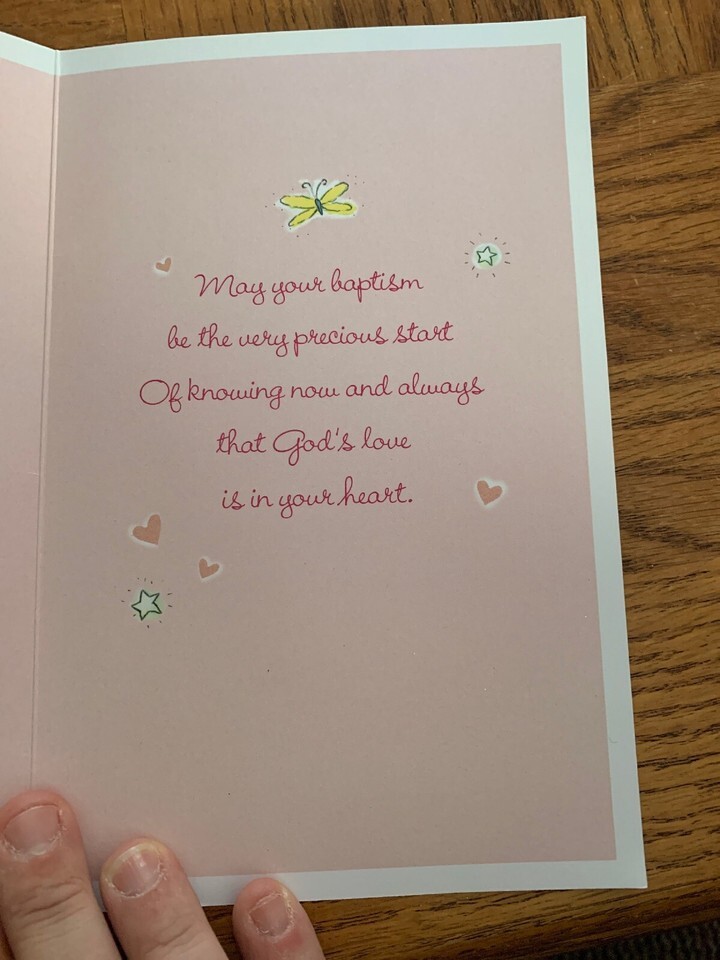 May your baptism
be the very precious start
Of knowing now and always
that God's love
is in your heart.